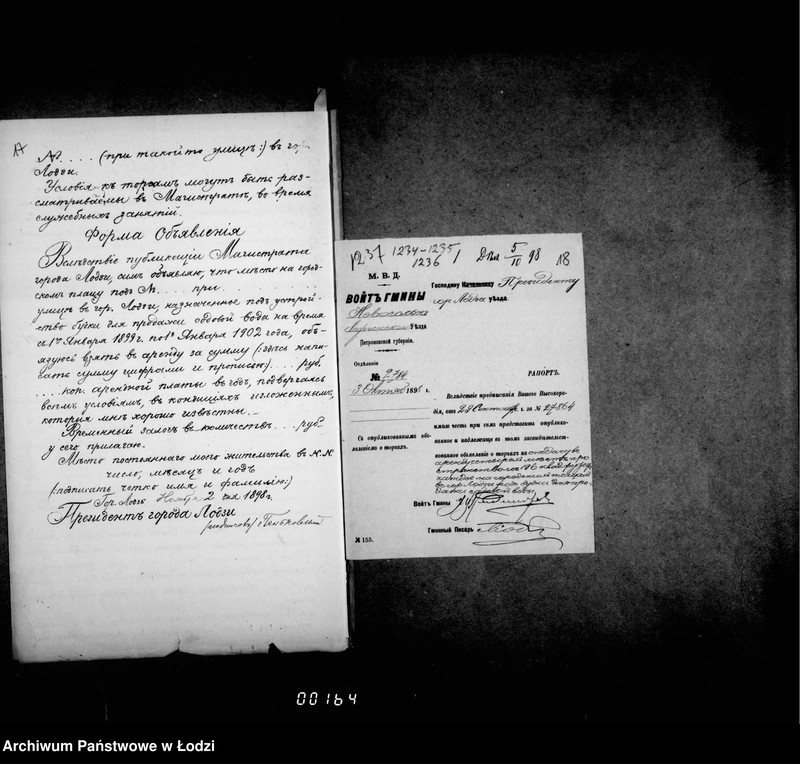 № . . . . (при такой то улицѣ:) въ гор.
Лодзи.
Условія къ торгамъ могутъ быть раз-
сматриваемы въ Магистратѣ, во время
служебныхъ занятій.
Форма Объявленія
Вслѣдствіе публикаціи Магистрата
города Лодзи, симъ объявляю, что мѣсто на город-
скомъ плацу подъ № . . . . при . . . .
улицѣ въ гор. Лодзи, назначенное подъ устрой-
ство будки для продажи содовой воды на время
съ 1го Января 1899 г. по 1е Января 1902 года, обя-
зуюсь взять въ аренду за сумму (:здѣсь напи-
сать сумму цифрами и прописью:) . . . . руб.
. . . . коп. арендной платы въ годъ, подвергаясь
всѣмъ условіямъ, въ кондиціяхъ изложеннымъ,
которыя мнѣ хорошо извѣстны. —
Временный залогъ въ количествѣ . . . руб.
у сего прилагаю.
Мѣсто постояннаго моего жительства въ N.N.
число, мѣсяцъ и годъ
(:подписать четко имя и фамилію:)
Гор. Лодзь 2 дня 1898 г.
Президентъ города Лодзи
(подписалъ) Пеньковскій
1237 1234-1235
1236
5 98 18
М. В. Д.
ВОЙТЪ ГМИНЫ
Уѣзда
Петроковской губерніи.
Отдѣленіе
№
3 Октября 1898 г.
Съ опубликованнымъ объ-
явленіемъ о торгахъ.
Господину Начальнику Президенту
гор. Лодзи уѣзда.
РАПОРТЪ.
Вслѣдствіе предписанія Вашего Высокоро-
дія, отъ 29 Сентября с. г. за № 27864
имѣю честь при семъ представить опублико-
ванное и надлежаще въ томъ засвидѣтельст-
вованное объявленіе о торгахъ на отдачу въ
аренду
на городской
въ гор. Лодзи подъ будки для про-
дажи содовой воды
Войтъ Гмины
Гминный Писарь
№ 155.
00164
Archiwum Państwowe w Łodzi